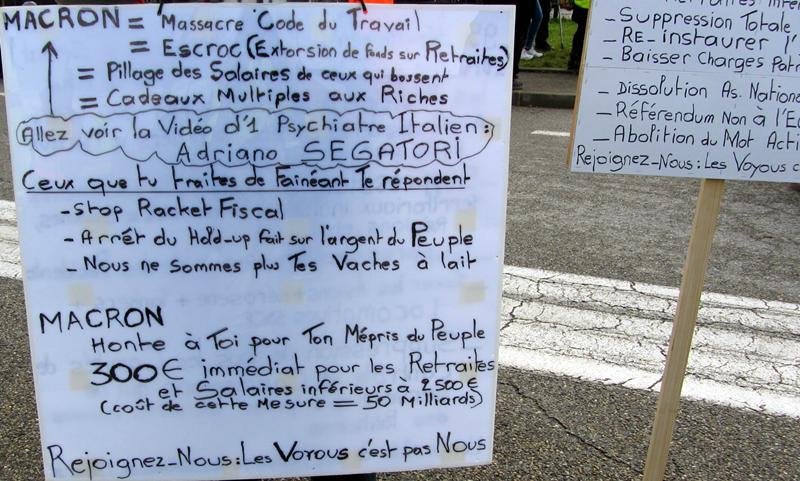 MACRON = Massacre Code du Travail
= Escroc (Extorsion de fonds sur Retraites)
= Pillage des Salaires de ceux qui bossent
= Cadeaux Multiples aux Riches
Allez voir la Vidéo d'1 Psychiatre Italien :
Adriano SEGATORI
Ceux que tu traites de Fainéant Te répondent
- Stop Racket Fiscal
- Arrêt du Hold-up fait sur l'argent du Peuple
- Nous ne Sommes plus Tes Vaches à lait
MACRON
Honte à Toi pour Ton Mépris du Peuple
300€ immédiat pour les Retraites
et Salaires inférieurs à 2500€
(coût de cette Mesure = 50 Milliards)
Rejoignez-Nous : Les Voyous c'est pas Nous
- Suppression Totale
- RE-instaurer l'
- Baisser Charges Patr
- Dissolution As. Nationa
- Référendum Non à l'E
- Abolition du Mot Acti
Rejoignez-Nous : Les Voyous c